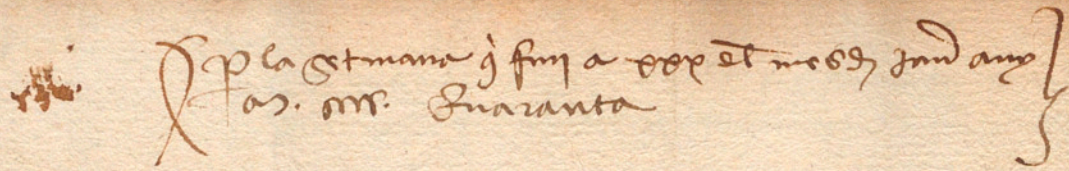 P la setmana q̄ fini a xxx del mes d Janer any
M. cccc. Quaranta